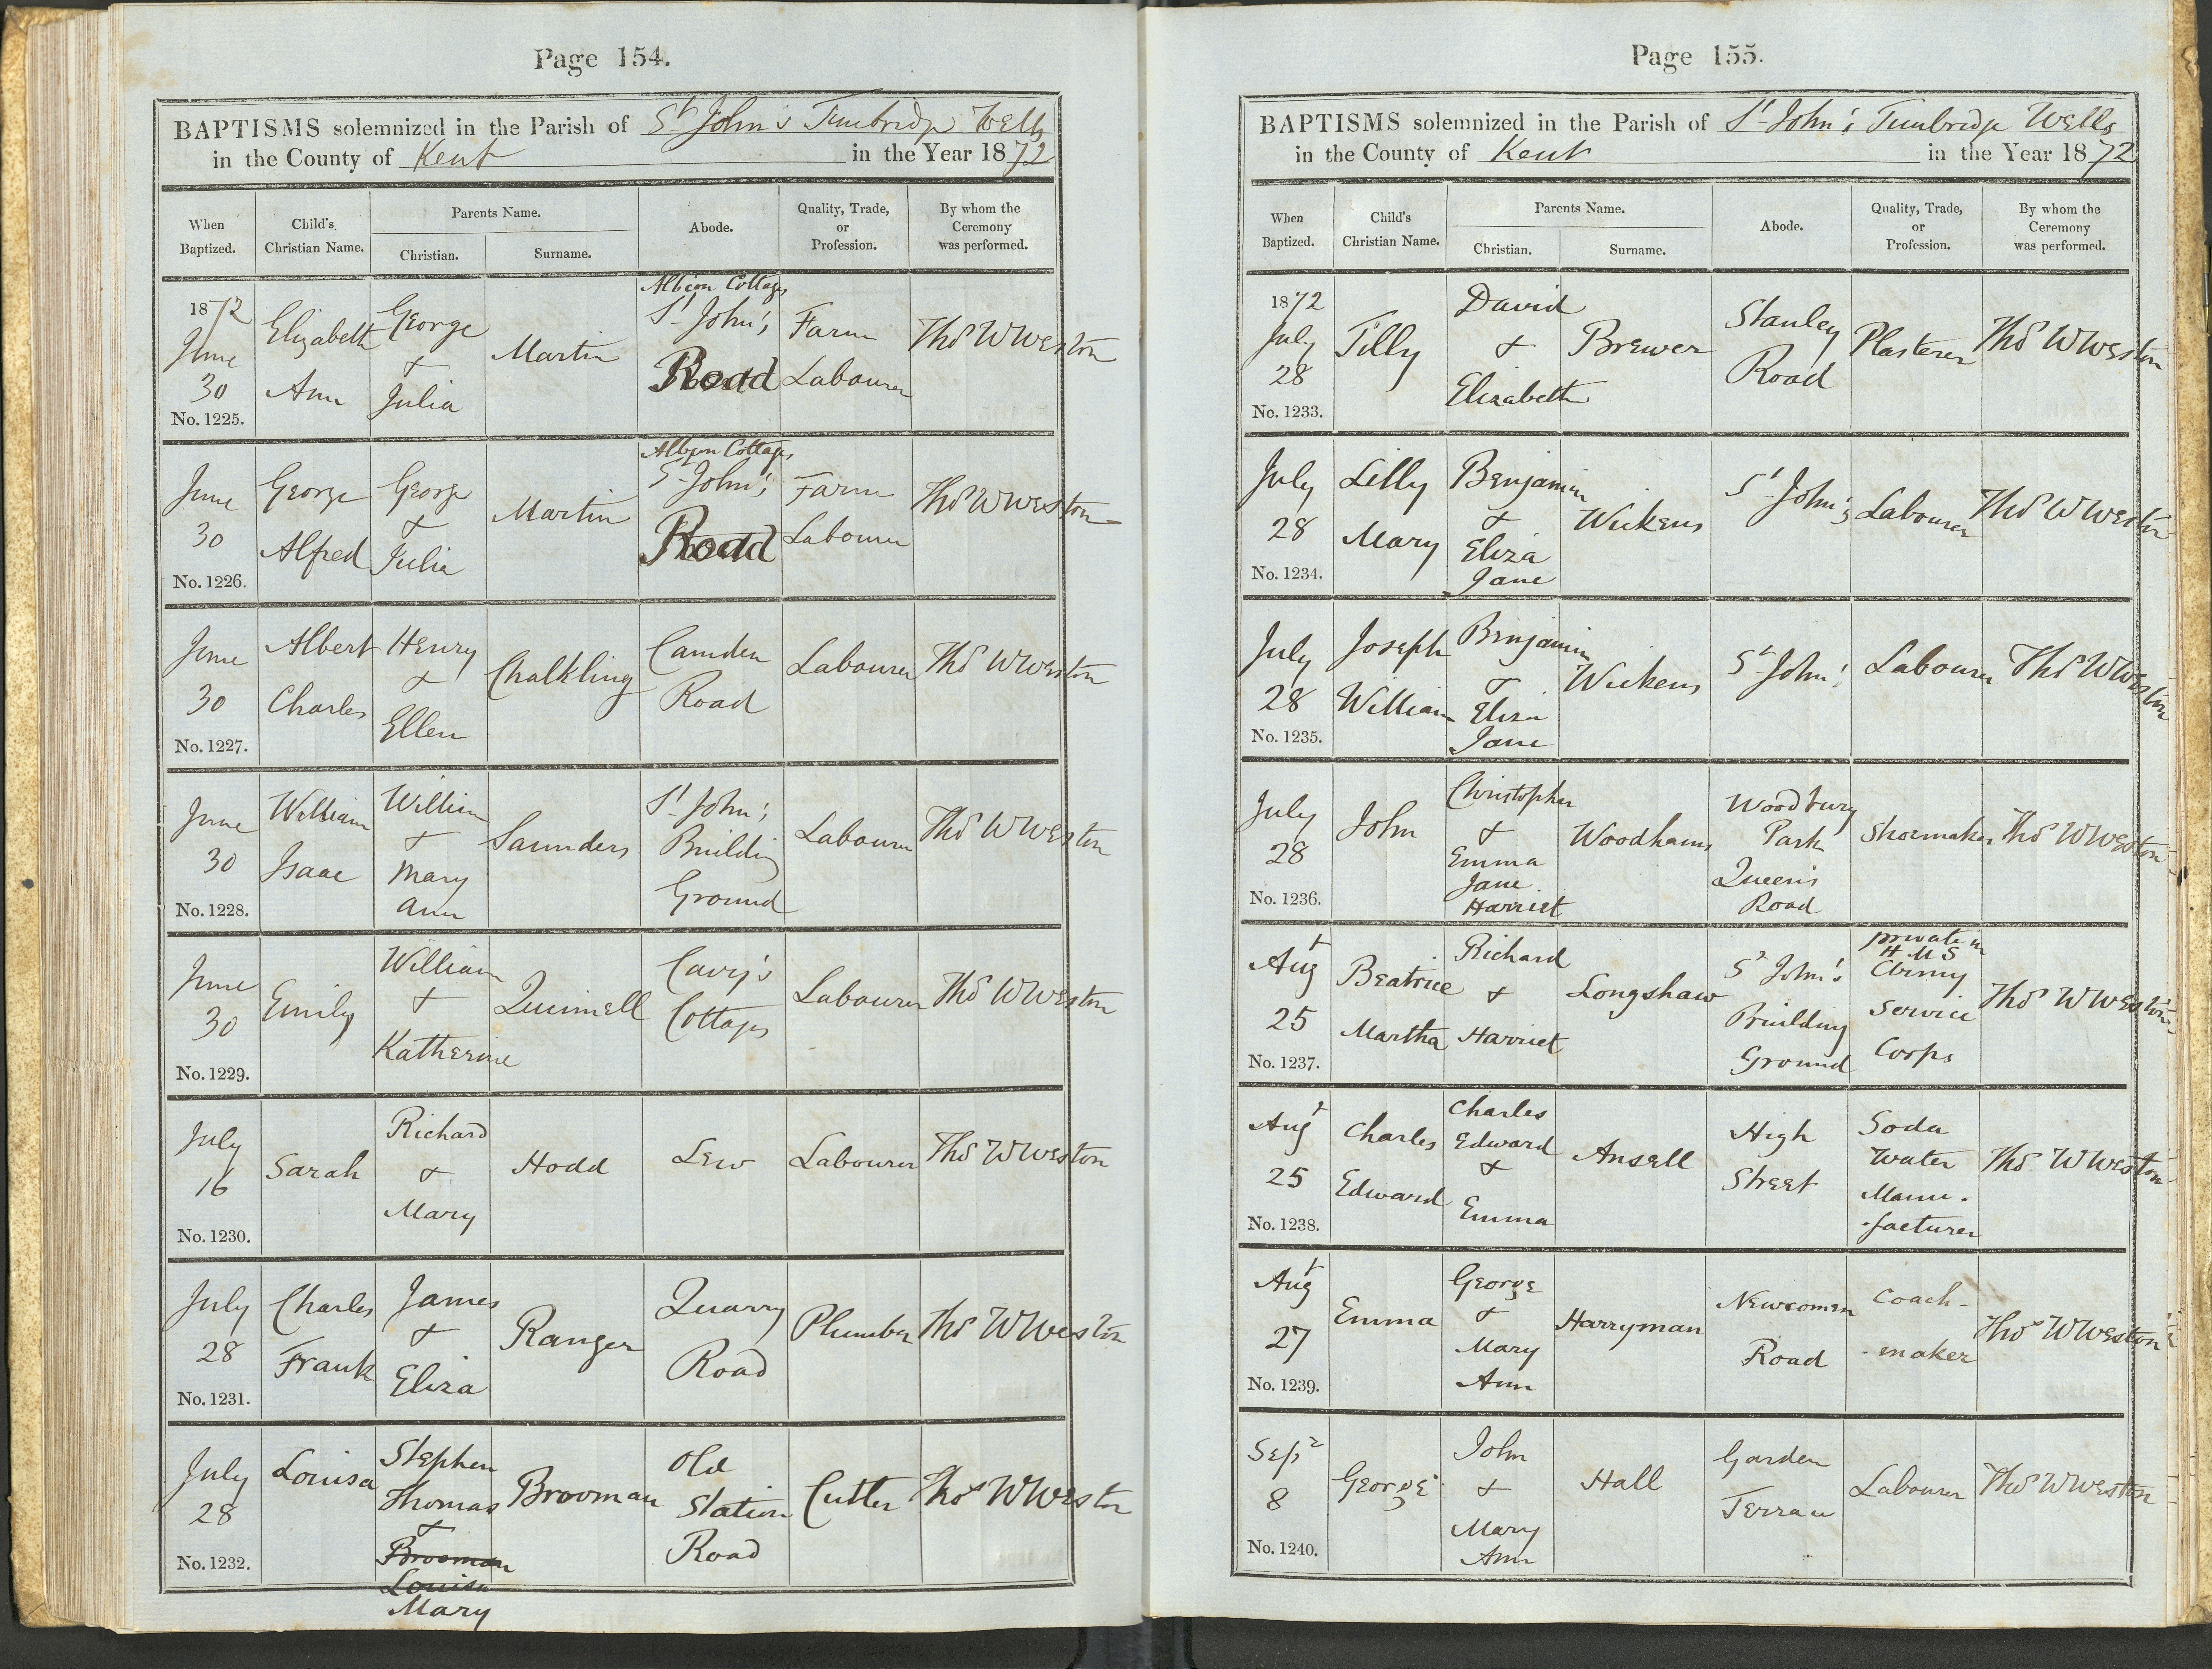 Page 154.
BAPTISMS solemnized in the Parish of St John's Tunbridge Wells
in the County of Kent in the Year 1872
When Baptized. Child's Christian Name. Parents Name. Christian. Surname. Abode. Quality, Trade, or Profession. By whom the Ceremony was performed.
1872 June 30 No. 1225. Elizabeth Ann George & Julia Martin Albion Cottages St John's Road Farm Labourer Thos W Weston
June 30 No. 1226. George Alfred George & Julia Martin Albion Cottages St John's Road Farm Labourer Thos W Weston
June 30 No. 1227. Albert Charles Henry & Ellen Chalkling Camden Road Labourer Thos W Weston
June 30 No. 1228. William Isaac William & Mary Ann Saunders St John's Building Ground Labourer Thos W Weston
June 30 No. 1229. Emily William & Katherine Quinnell Cottages Labourer Thos W Weston
July 16 No. 1230. Sarah Richard & Mary Hodd Lew Labourer Thos W Weston
July 28 No. 1231. Charles Frank James & Eliza Ranger Quarry Road Plumber Thos W Weston
July 28 No. 1232. Louisa Stephen Thomas & Brooman Louisa Mary Brooman Old Station Road Cutler Thos W Weston
Page 155.
BAPTISMS solemnized in the Parish of St John's Tunbridge Wells
in the County of Kent in the Year 1872
When Baptized. Child's Christian Name. Parents Name. Christian. Surname. Abode. Quality, Trade, or Profession. By whom the Ceremony was performed.
1872 July 28 No. 1233. Tilly David & Elizabeth Brewer Stanley Road Plasterer Thos W Weston
July 28 No. 1234. Lilly Mary Benjamin & Eliza Jane Wickens St John's Labourer Thos W Weston
July 28 No. 1235. Joseph William Benjamin & Eliza Jane Wickens St John's Labourer Thos W Weston
July 28 No. 1236. John Christopher & Emma Jane Harriet Woodhams Woodbury Park Queen's Road Shoemaker Thos W Weston
Augt 25 No. 1237. Beatrice Martha Richard & Harriet Longshaw St John's Building Ground private in H M S Army Service Corps Thos W Weston
Augt 25 No. 1238. Charles Edward Charles Edward & Emma Ansell High Street Soda Water Manu- -facturer Thos W Weston
Augt 27 No. 1239. Emma George & Mary Ann Harryman Newcomen Road Coach- -maker Thos W Weston
Sepr 8 No. 1240. George John & Mary Ann Hall Garden Terrace Labourer Thos W Weston